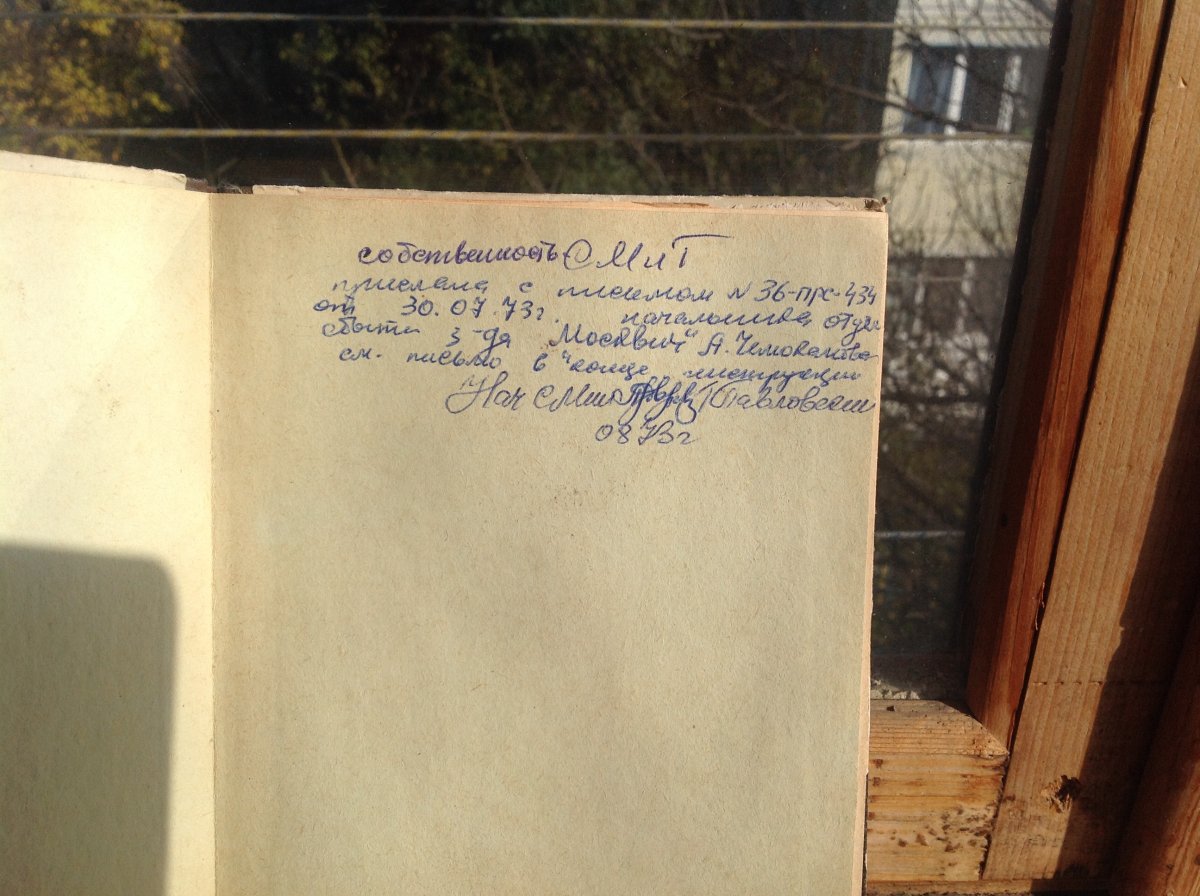 собственность СМиТ
прислана с письмом № 36-прс-434
от 30.07.73г. начальника отдела
сбыта з-да "Москвич" А.
см. письмо в конце инструкции
Нач СМиТ Павловский
08 73г